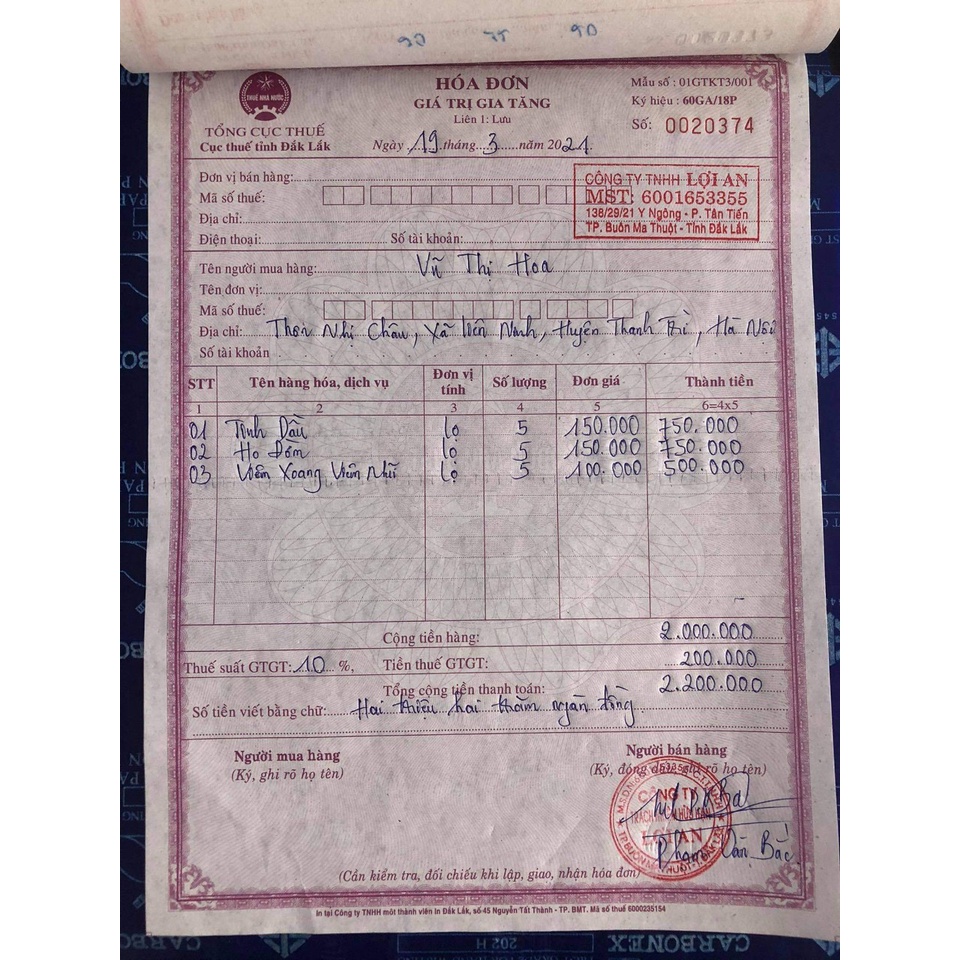 90 75 90
HÓA ĐƠN
GIÁ TRỊ GIA TĂNG
Liên 1: Lưu
Mẫu số : 01GTKT3/001
Ký hiệu : 60GA/18P
Số: 0020374
THUẾ NHÀ NƯỚC
TỔNG CỤC THUẾ
Cục thuế tỉnh Đắk Lắk
Ngày 19 tháng 3 năm 2021.
Đơn vị bán hàng:
Mã số thuế:
Địa chỉ:
Điện thoại: Số tài khoản:
CÔNG TY TNHH LỢI AN
MST: 6001653355
138/29/21 Y Ngông - P. Tân Tiến
TP. Buôn Ma Thuột - Tỉnh Đắk Lắk
Tên người mua hàng: Vũ Thị Hoa
Tên đơn vị:
Mã số thuế:
Địa chỉ: Thôn Nhị Châu, Xã Liên Ninh, Huyện Thanh Trì, Hà Nội
Số tài khoản
STT Tên hàng hóa, dịch vụ Đơn vị tính Số lượng Đơn giá Thành tiền
1 2 3 4 5 6=4x5
01 Tinh Dầu lọ 5 150.000 750.000
02 Ho Đờm lọ 5 150.000 750.000
03 Viêm Xoang Viêm Mũi lọ 5 100.000 500.000
Cộng tiền hàng: 2.000.000
Thuế suất GTGT: 10 %, Tiền thuế GTGT: 200.000
Tổng cộng tiền thanh toán: 2.200.000
Số tiền viết bằng chữ: Hai triệu hai trăm ngàn đồng
Người mua hàng
(Ký, ghi rõ họ tên)
Người bán hàng
(Ký, đóng ghi rõ họ tên)
CÔNG TY
TRÁCH NHIỆM HỮU HẠN
LỢI AN
TP.BUÔN MA THUỘT-T.ĐẮK LẮK
Phạm Văn Bắc
(Cần kiểm tra, đối chiếu khi lập, giao, nhận hóa đơn)
In tại Công ty TNHH một thành viên In Đắk Lắk, số 45 Nguyễn Tất Thành - TP. BMT. Mã số thuế 6000235154
CARBONEX
202 H
CARBONEX